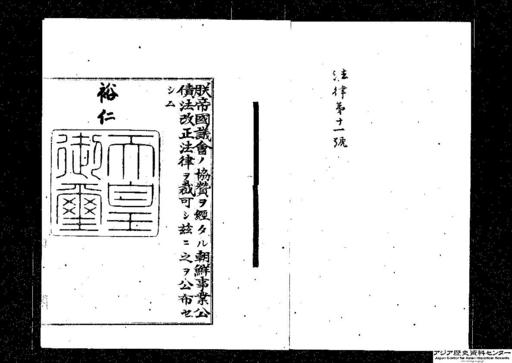 法律第十一號
朕帝國議會ノ協賛ヲ經タル朝鮮事業公
債法改正法律ヲ裁可シ茲ニ之ヲ公布セ
シム
裕仁
天皇
御璽
アジア歴史資料センター
Japan Center for Asian Historical Records